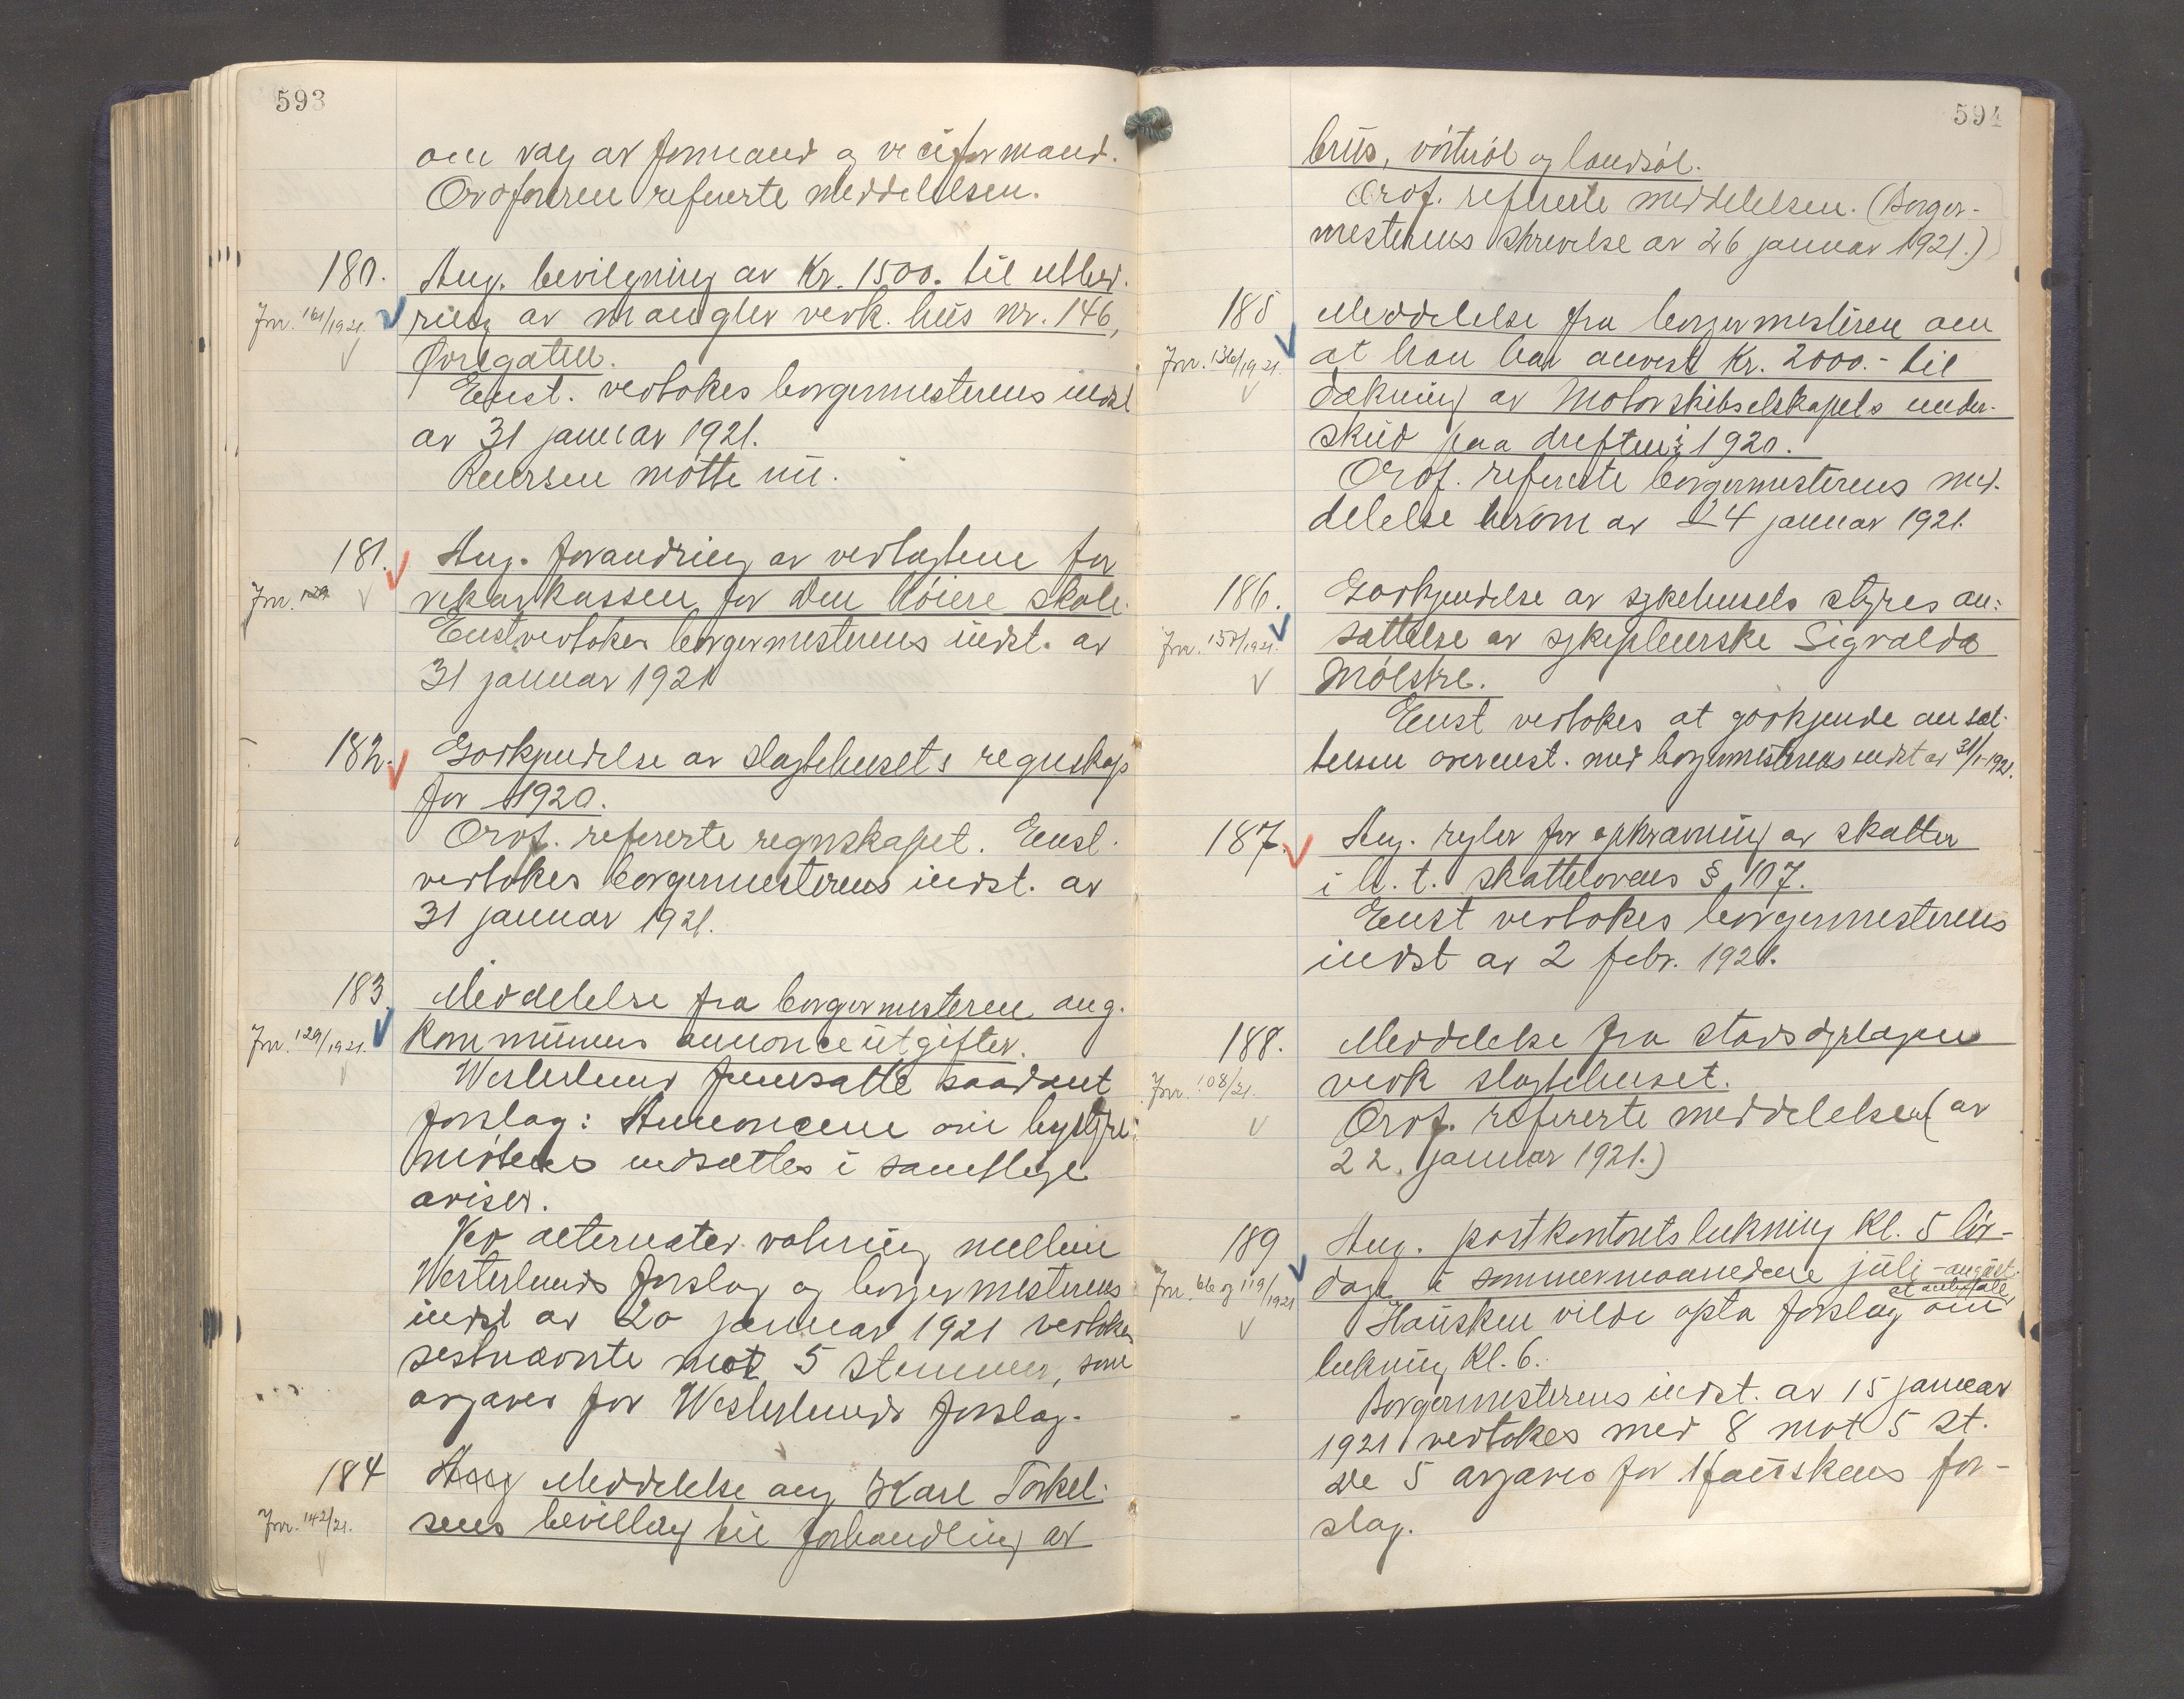 593
om valg av formand og viceformand.
Ordføreren refererte meddelelsen.
180. Ang. bevilgning av Kr. 1500. til utbed-
Jnr. 161/1921. ring av mangler vedk. hus nr. 146,
Øvregaten.
Enst. vedtokes borgermesterens indst
av 31 januar 1921.
møtte nu.
181. Ang. forandring av vedtægtene for
Jnr. vikarkassen for den høiere skole.
Enst vedtokes borgermesterens indst. av
31 januar 1921
182. Godkjendelse av slagtehusets regnskap
for 1920.
Ordf. refererte regnskapet. Enst.
vedtokes borgermesterens indst. av
31 januar 1921.
183. Meddelelse fra borgermesteren ang.
Jnr. 129/1921. kommunens annonceutgifter.
Westerlund fremsatte saadant
forslag: Annoncene om bystyre-
møtene indsættes i samtlige
aviser.
Ved alternativ votering mellem
Westerlunds forslag og borgermesterens
indst av 20 januar 1921 vedtokes
sidstnævnte mot 5 stemmer, som
avgaves for Westerlunds forslag.
184 Ang Meddelelse ang Karl Torkel-
Jnr. 142/21. sens bevilling til forhandling av
594
brus, vørterøl og landsøl.
Ordf. refererte meddelelsen. (Borger-
mesterens skrivelse av 26 januar 1921.)
185 Meddelelse fra borgermesteren om
Jnr. 136/1921. at han har anvist Kr. 2000.- til
dækning av Motorskibselskapets under-
skud paa driften i 1920.
Ordf. refererte borgermesterens med-
delelse herom av 24 januar 1921.
186. Godkjendelse av sykehusets styres an-
Jnr. 157/1921. sættelse av sykepleierske Sigvalda
Mølstre.
Enst vedtokes at godkjende ansæt-
telsen overenst. med borgermesterens indst av 31/1-1921.
187. Ang. regler for opkrævning av skatter
i h. t. skattelovens § 107.
Enst vedtokes borgermesterens
indst av 2 febr. 1921.
188. Meddelelse fra stadsdyrlægen
Jnr. 108/21. vedk slagtehuset.
Ordf. refererte meddelelsen (av
22. januar 1921.)
189 Ang. postkontorets lukning Kl. 5 lør-
Jnr. 66 og 119/1921 dage i sommermaanedene juli - august.
Hausken vilde opta forslag at anbefale om
lukning Kl. 6.
Borgermesterens indst. av 15 januar
1921 vedtokes med 8 mot 5 st.
De 5 avgaves for Hauskens for-
slag.